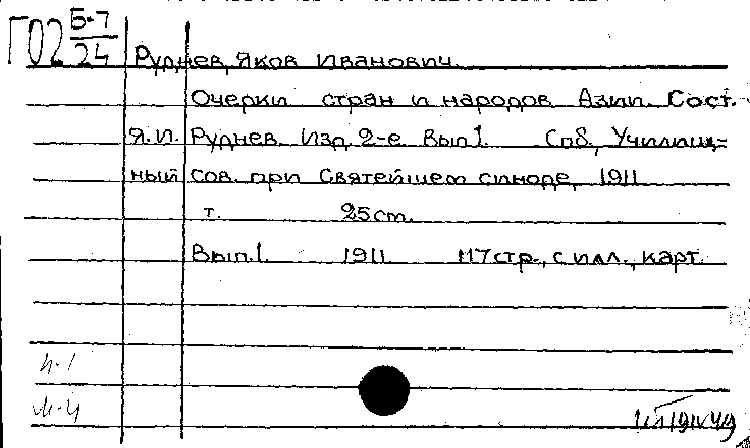 Г02 Б-7/24
Руднев, Яков Иванович.
Очерки стран и народов Азии. Сост.
Я.И. Руднев. Изд. 2-е. Вып. 1. Спб., Училищ-
ный сов. при Святейшем синоде, 1911
т. 25 cm.
Вып. 1. 1911 117 стр., с илл., карт.